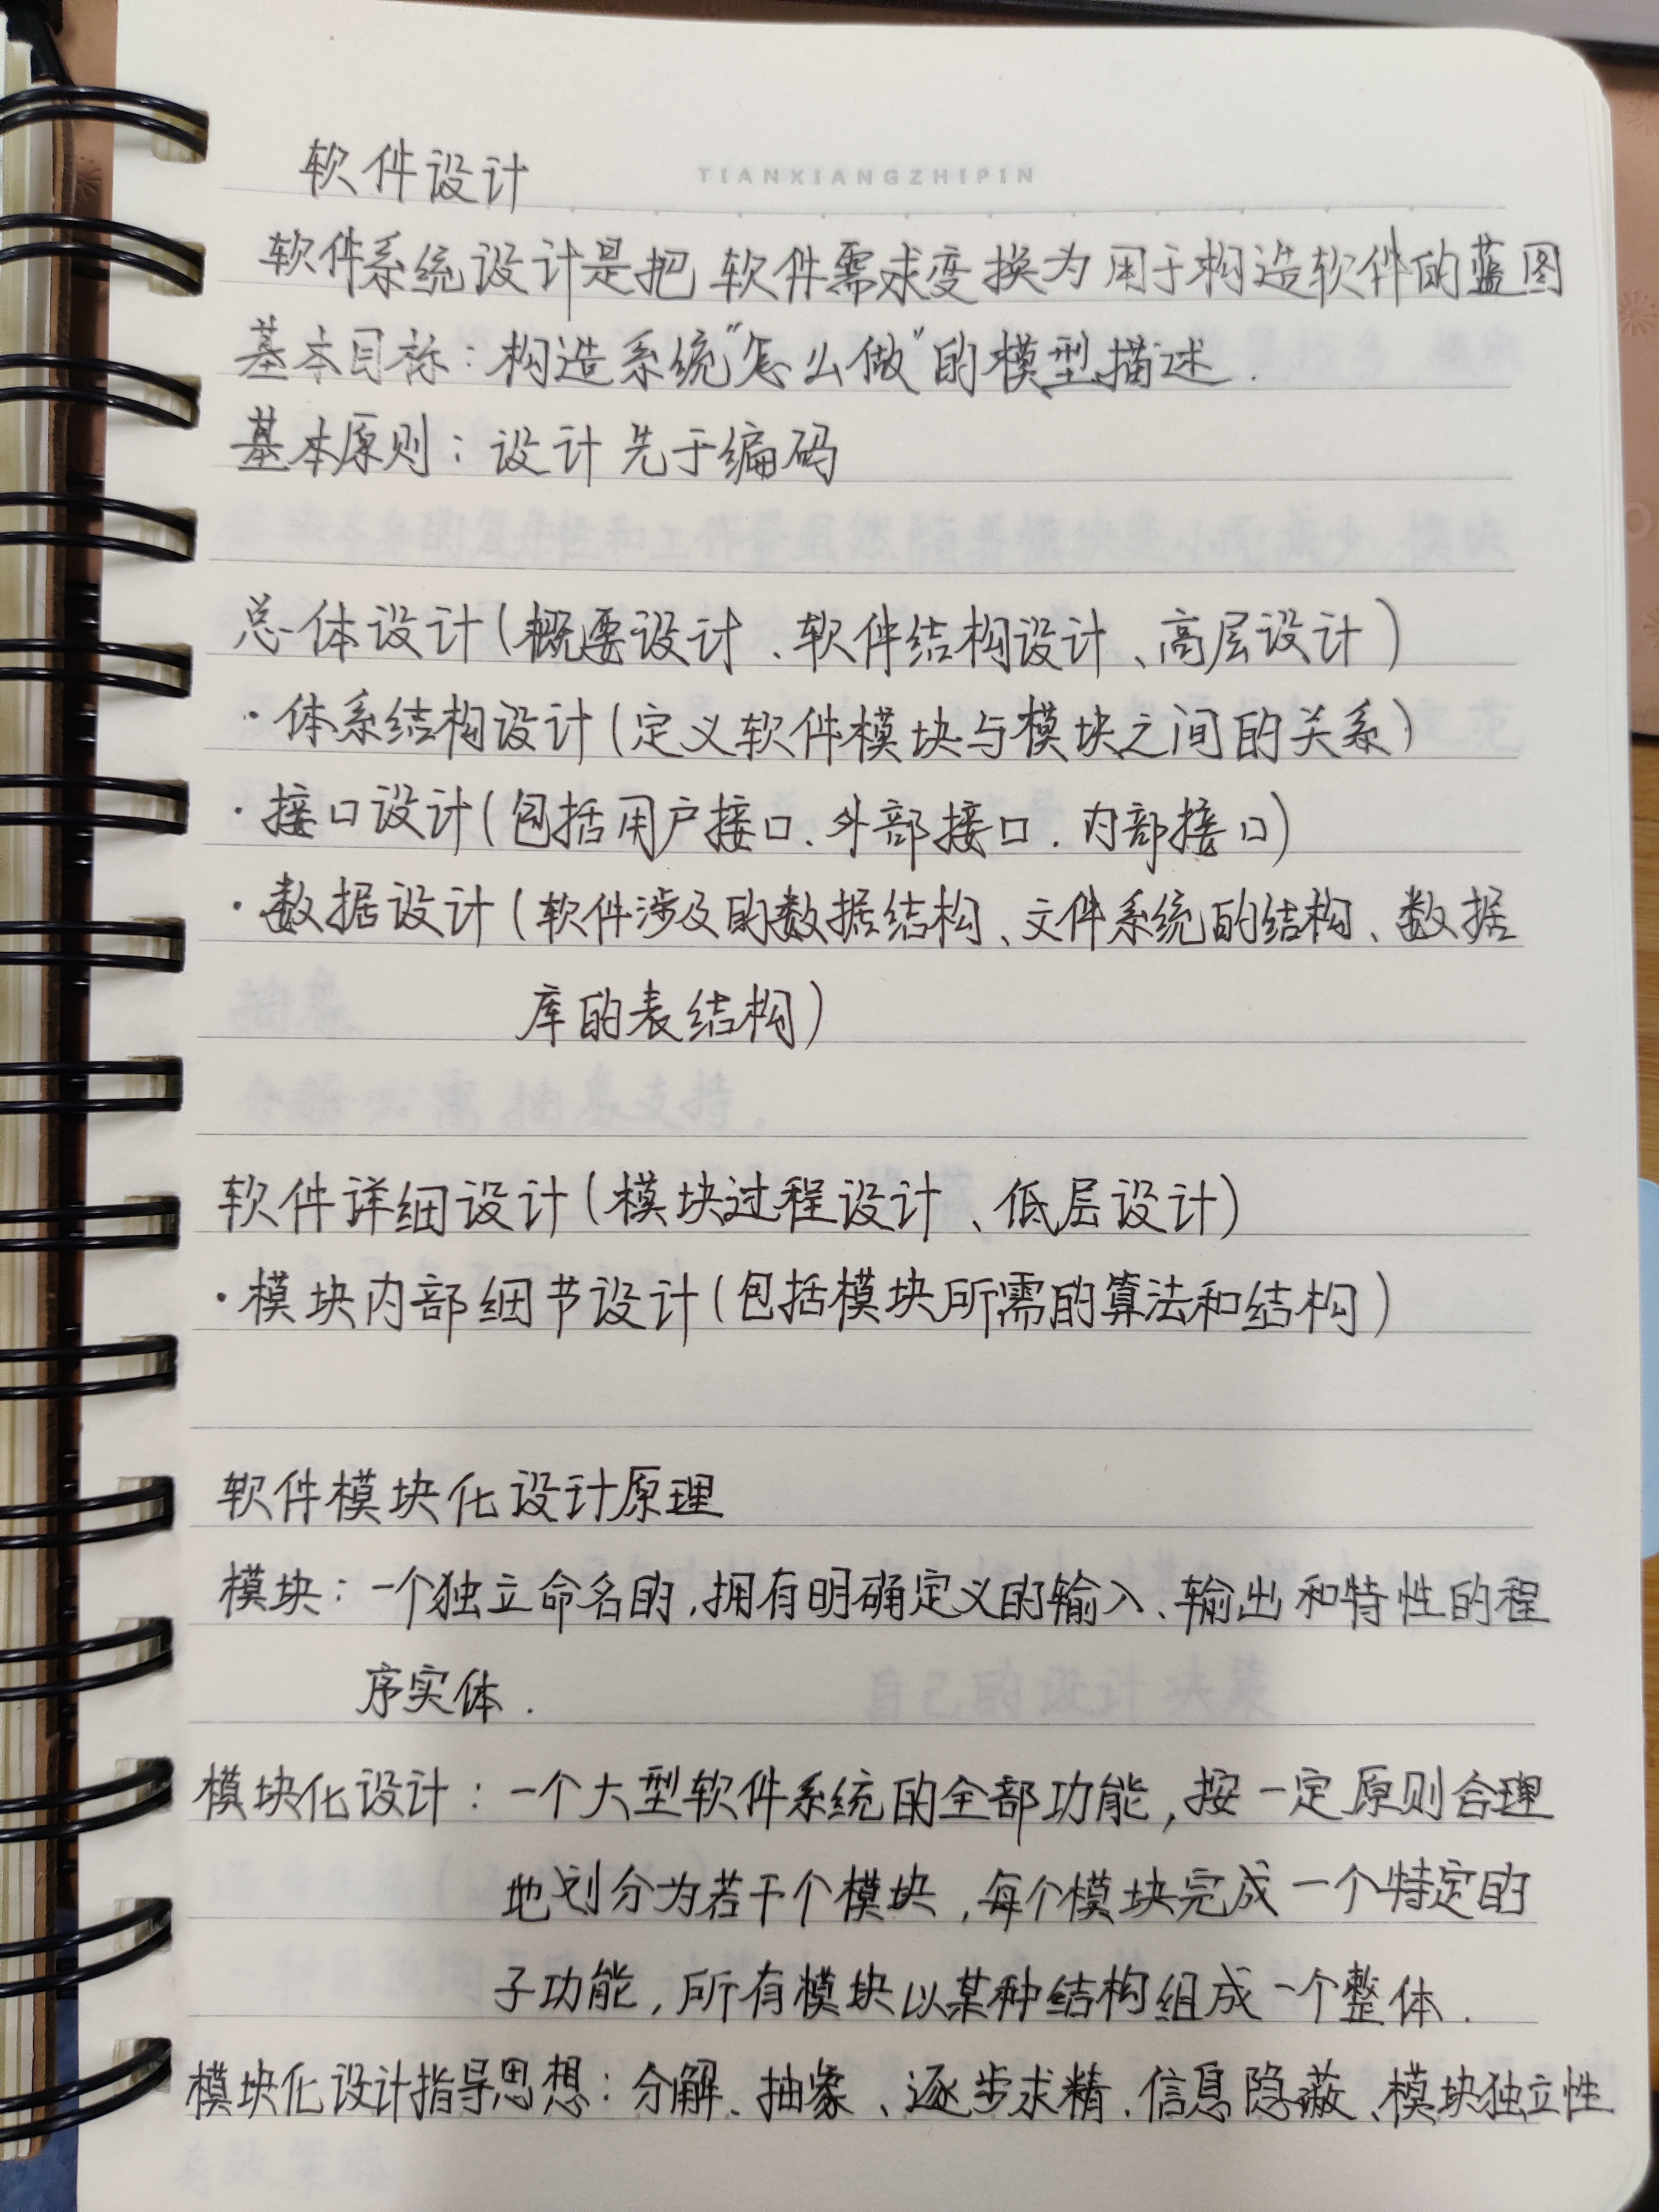 TIANXIANGZHIPIN
软件设计
软件系统设计是把软件需求变换为用于构造软件的蓝图
基本目标：构造系统"怎么做"的模型描述.
基本原则：设计先于编码
总体设计(概要设计、软件结构设计、高层设计)
·体系结构设计(定义软件模块与模块之间的关系)
·接口设计(包括用户接口、外部接口、内部接口)
·数据设计(软件涉及的数据结构、文件系统的结构、数据
库的表结构)
软件详细设计(模块过程设计、低层设计)
·模块内部细节设计(包括模块所需的算法和结构)
软件模块化设计原理
模块：一个独立命名的,拥有明确定义的输入、输出和特性的程
序实体.
模块化设计：一个大型软件系统的全部功能,按一定原则合理
地划分为若干个模块,每个模块完成一个特定的
子功能,所有模块以某种结构组成一个整体.
模块化设计指导思想：分解、抽象、逐步求精、信息隐蔽、模块独立性